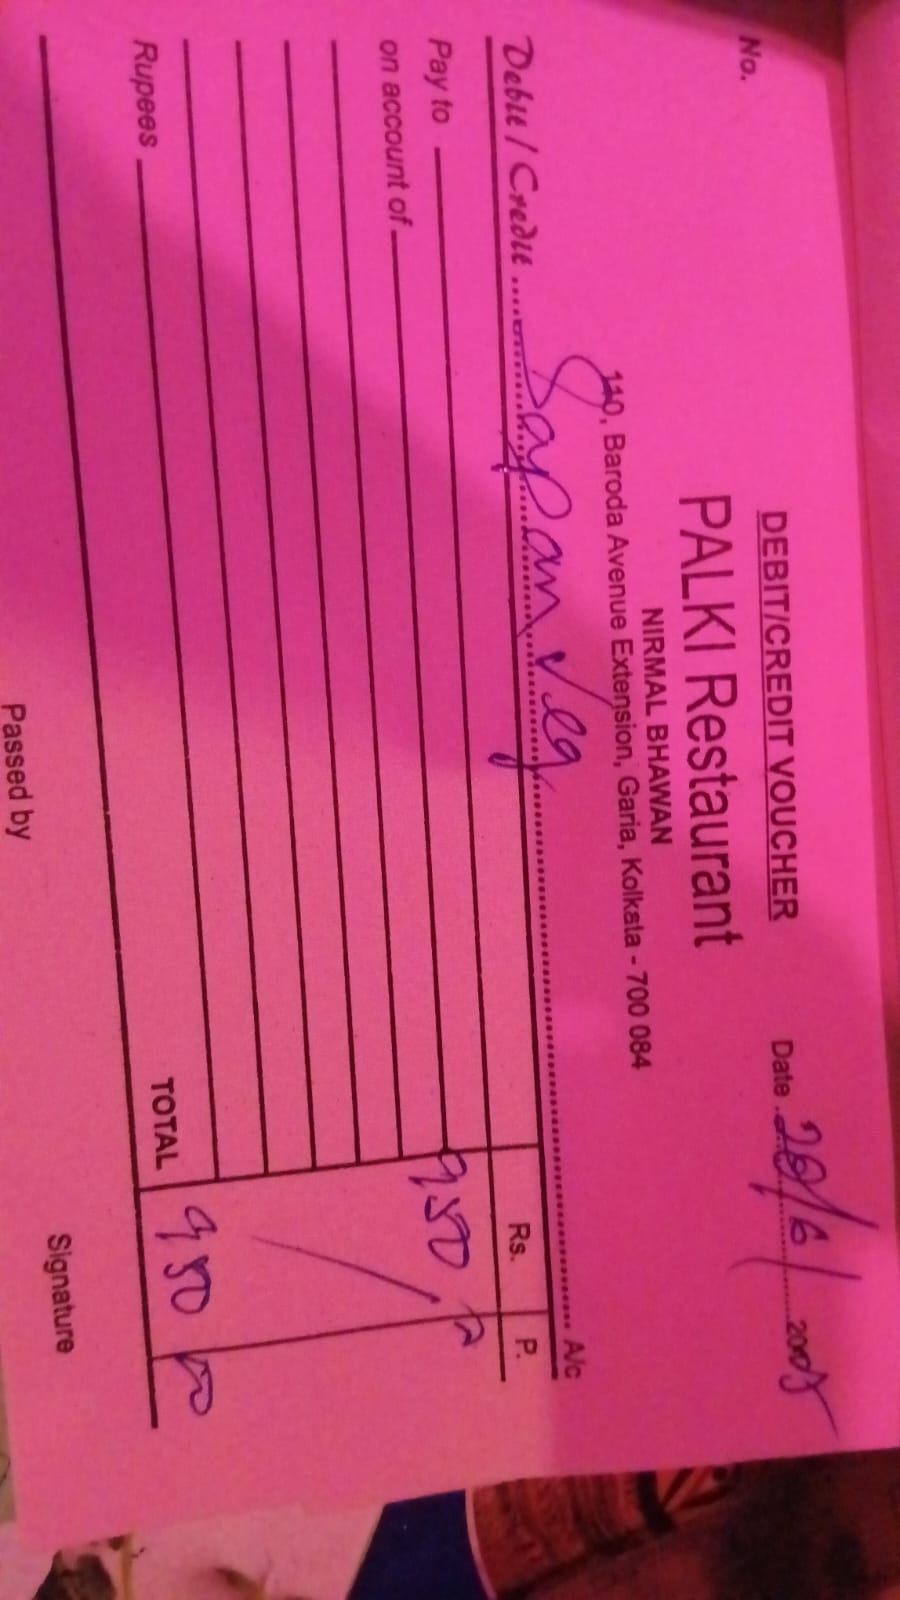 No.
DEBIT/CREDIT VOUCHER
Date 20/6/2005
PALKI Restaurant
NIRMAL BHAWAN
110, Baroda Avenue Extension, Garia, Kolkata - 700 084
Debit / Credit Veg A/c
Rs. P.
Pay to 950
on account of
Rupees TOTAL 950
Passed by Signature